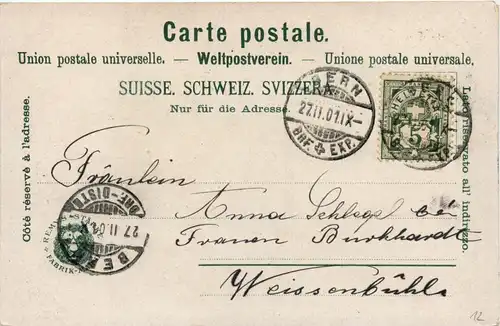 Carte postale.
Union postale universelle. — Weltpostverein. — Unione postale universale.
SUISSE. SCHWEIZ. SVIZZERA.
Nur für die Adresse.
Côté réservé à l'adresse.
Lato riservato all' indirizzo.
BERN
27.II.01.IX-
BRF. EXP.
5
Fräulein
Anna Schlegel bei
Frauen Burkhardt
Weissenbühl
BERN
27 II 01
BRF.-DISTR.
FABRIK-
12